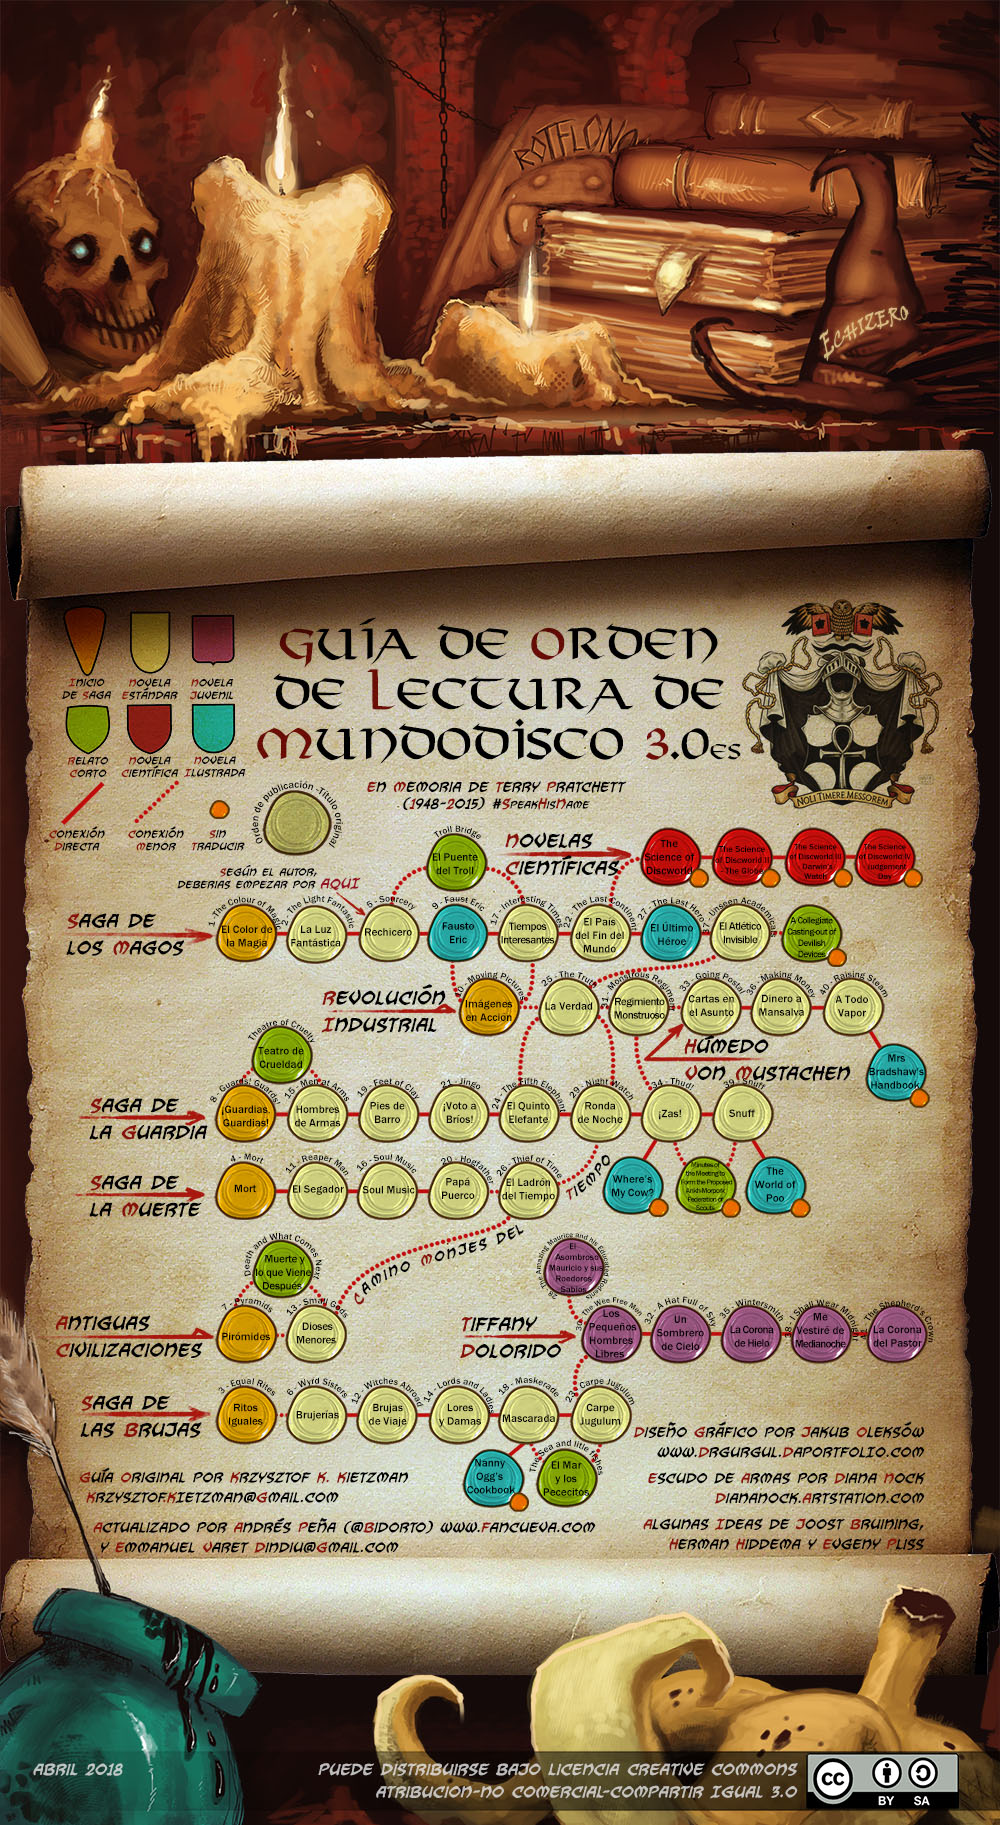 ROTFLONO
ECHIZERO
Guía de Orden
de Lectura de
Mundodisco 3.0es
Inicio
de Saga
Novela
Estándar
Novela
Juvenil
Relato
Corto
Novela
Científica
Novela
Ilustrada
Conexión
Directa
Conexión
Menor
Sin
Traducir
Orden de publicación - Título original
En Memoria de Terry Pratchett
(1948-2015) #SpeakHisName
NOLI TIMERE MESSOREM
Según el autor,
deberias empezar por AQUI
Troll Bridge
El Puente
del Troll
Novelas
Científicas
The
Science of
Discworld
The Science
of Discworld II
The Globe
The Science
of Discworld III
Darwin's
Watch
The Science
of Discworld IV
Judgement
Day
Saga de
los Magos
1 - The Colour of Magic
El Color de
la Magia
2 - The Light Fantastic
La Luz
Fantástica
5 - Sourcery
Rechicero
9 - Faust Eric
Fausto
Eric
17 - Interesting Times
Tiempos
Interesantes
22 - The Last Continent
El País
del Fin del
Mundo
27 - The Last Hero
El Último
Héroe
37 - Unseen Academicals
El Atlético
Invisible
A Collegiate
Casting-out of
Devilish
Devices
Revolución
Industrial
10 - Moving Pictures
Imágenes
en Acción
25 - The Truth
La Verdad
31 - Monstrous Regiment
Regimiento
Monstruoso
33 - Going Postal
Cartas en
el Asunto
36 - Making Money
Dinero a
Mansalva
40 - Raising Steam
A Todo
Vapor
Húmedo
von Mustachen
Mrs
Bradshaw's
Handbook
Theatre of Cruelty
Teatro de
Crueldad
Saga de
la Guardia
8 - Guards! Guards!
¡Guardias,
Guardias!
15 - Men at Arms
Hombres
de Armas
19 - Feet of Clay
Pies de
Barro
21 - Jingo
¡Voto a
Bríos!
24 - The Fifth Elephant
El Quinto
Elefante
29 - Night Watch
Ronda
de Noche
34 - Thud!
¡Zas!
39 - Snuff
Snuff
Where's
My Cow?
Minutes of
the Meeting to
Form the Proposed
Ankh-Morpork
Federation of
Scouts
The
World of
Poo
Saga de
la Muerte
4 - Mort
Mort
11 - Reaper Man
El Segador
16 - Soul Music
Soul Music
20 - Hogfather
Papá
Puerco
26 - Thief of Time
El Ladrón
del Tiempo
Camino Monjes del Tiempo
Death and What Comes Next
Muerte y
lo que Viene
Después
Antiguas
Civilizaciones
7 - Pyramids
Pirómides
13 - Small Gods
Dioses
Menores
28 - The Amazing Maurice and his Educated Rodents
El
Asombroso
Mauricio y sus
Roedores
Sabios
Tiffany
Dolorido
30 - The Wee Free Men
Los
Pequeños
Hombres
Libres
32 - A Hat Full of Sky
Un
Sombrero
de Cielo
35 - Wintersmith
La Corona
de Hielo
38 - I Shall Wear Midnight
Me
Vestiré de
Medianoche
The Shepherd's Crown
La Corona
del Pastor
Saga de
las Brujas
3 - Equal Rites
Ritos
Iguales
6 - Wyrd Sisters
Brujerías
12 - Witches Abroad
Brujas
de Viaje
14 - Lords and Ladies
Lores
y Damas
18 - Maskerade
Mascarada
23 - Carpe Jugulum
Carpe
Jugulum
Nanny
Ogg's
Cookbook
The Sea and little fishes
El Mar
y los
Pececitos
Diseño Gráfico por Jakub Oleksów
www.DrGurgul.DaPortfolio.com
Guía Original por Krzysztof K. Kietzman
Krzysztof.Kietzman@Gmail.com
Escudo de Armas por Diana Nock
Diananock.Artstation.com
Actualizado por Andrés Peña (@Bidorto) www.Fancueva.com
y Emmanuel Varet Dindiu@Gmail.com
Algunas Ideas de Joost Bruining,
Herman Hiddema y Evgeny Pliss
Abril 2018
Puede distribuirse bajo licencia Creative Commons
Atribucion-No Comercial-Compartir Igual 3.0
cc
BY SA